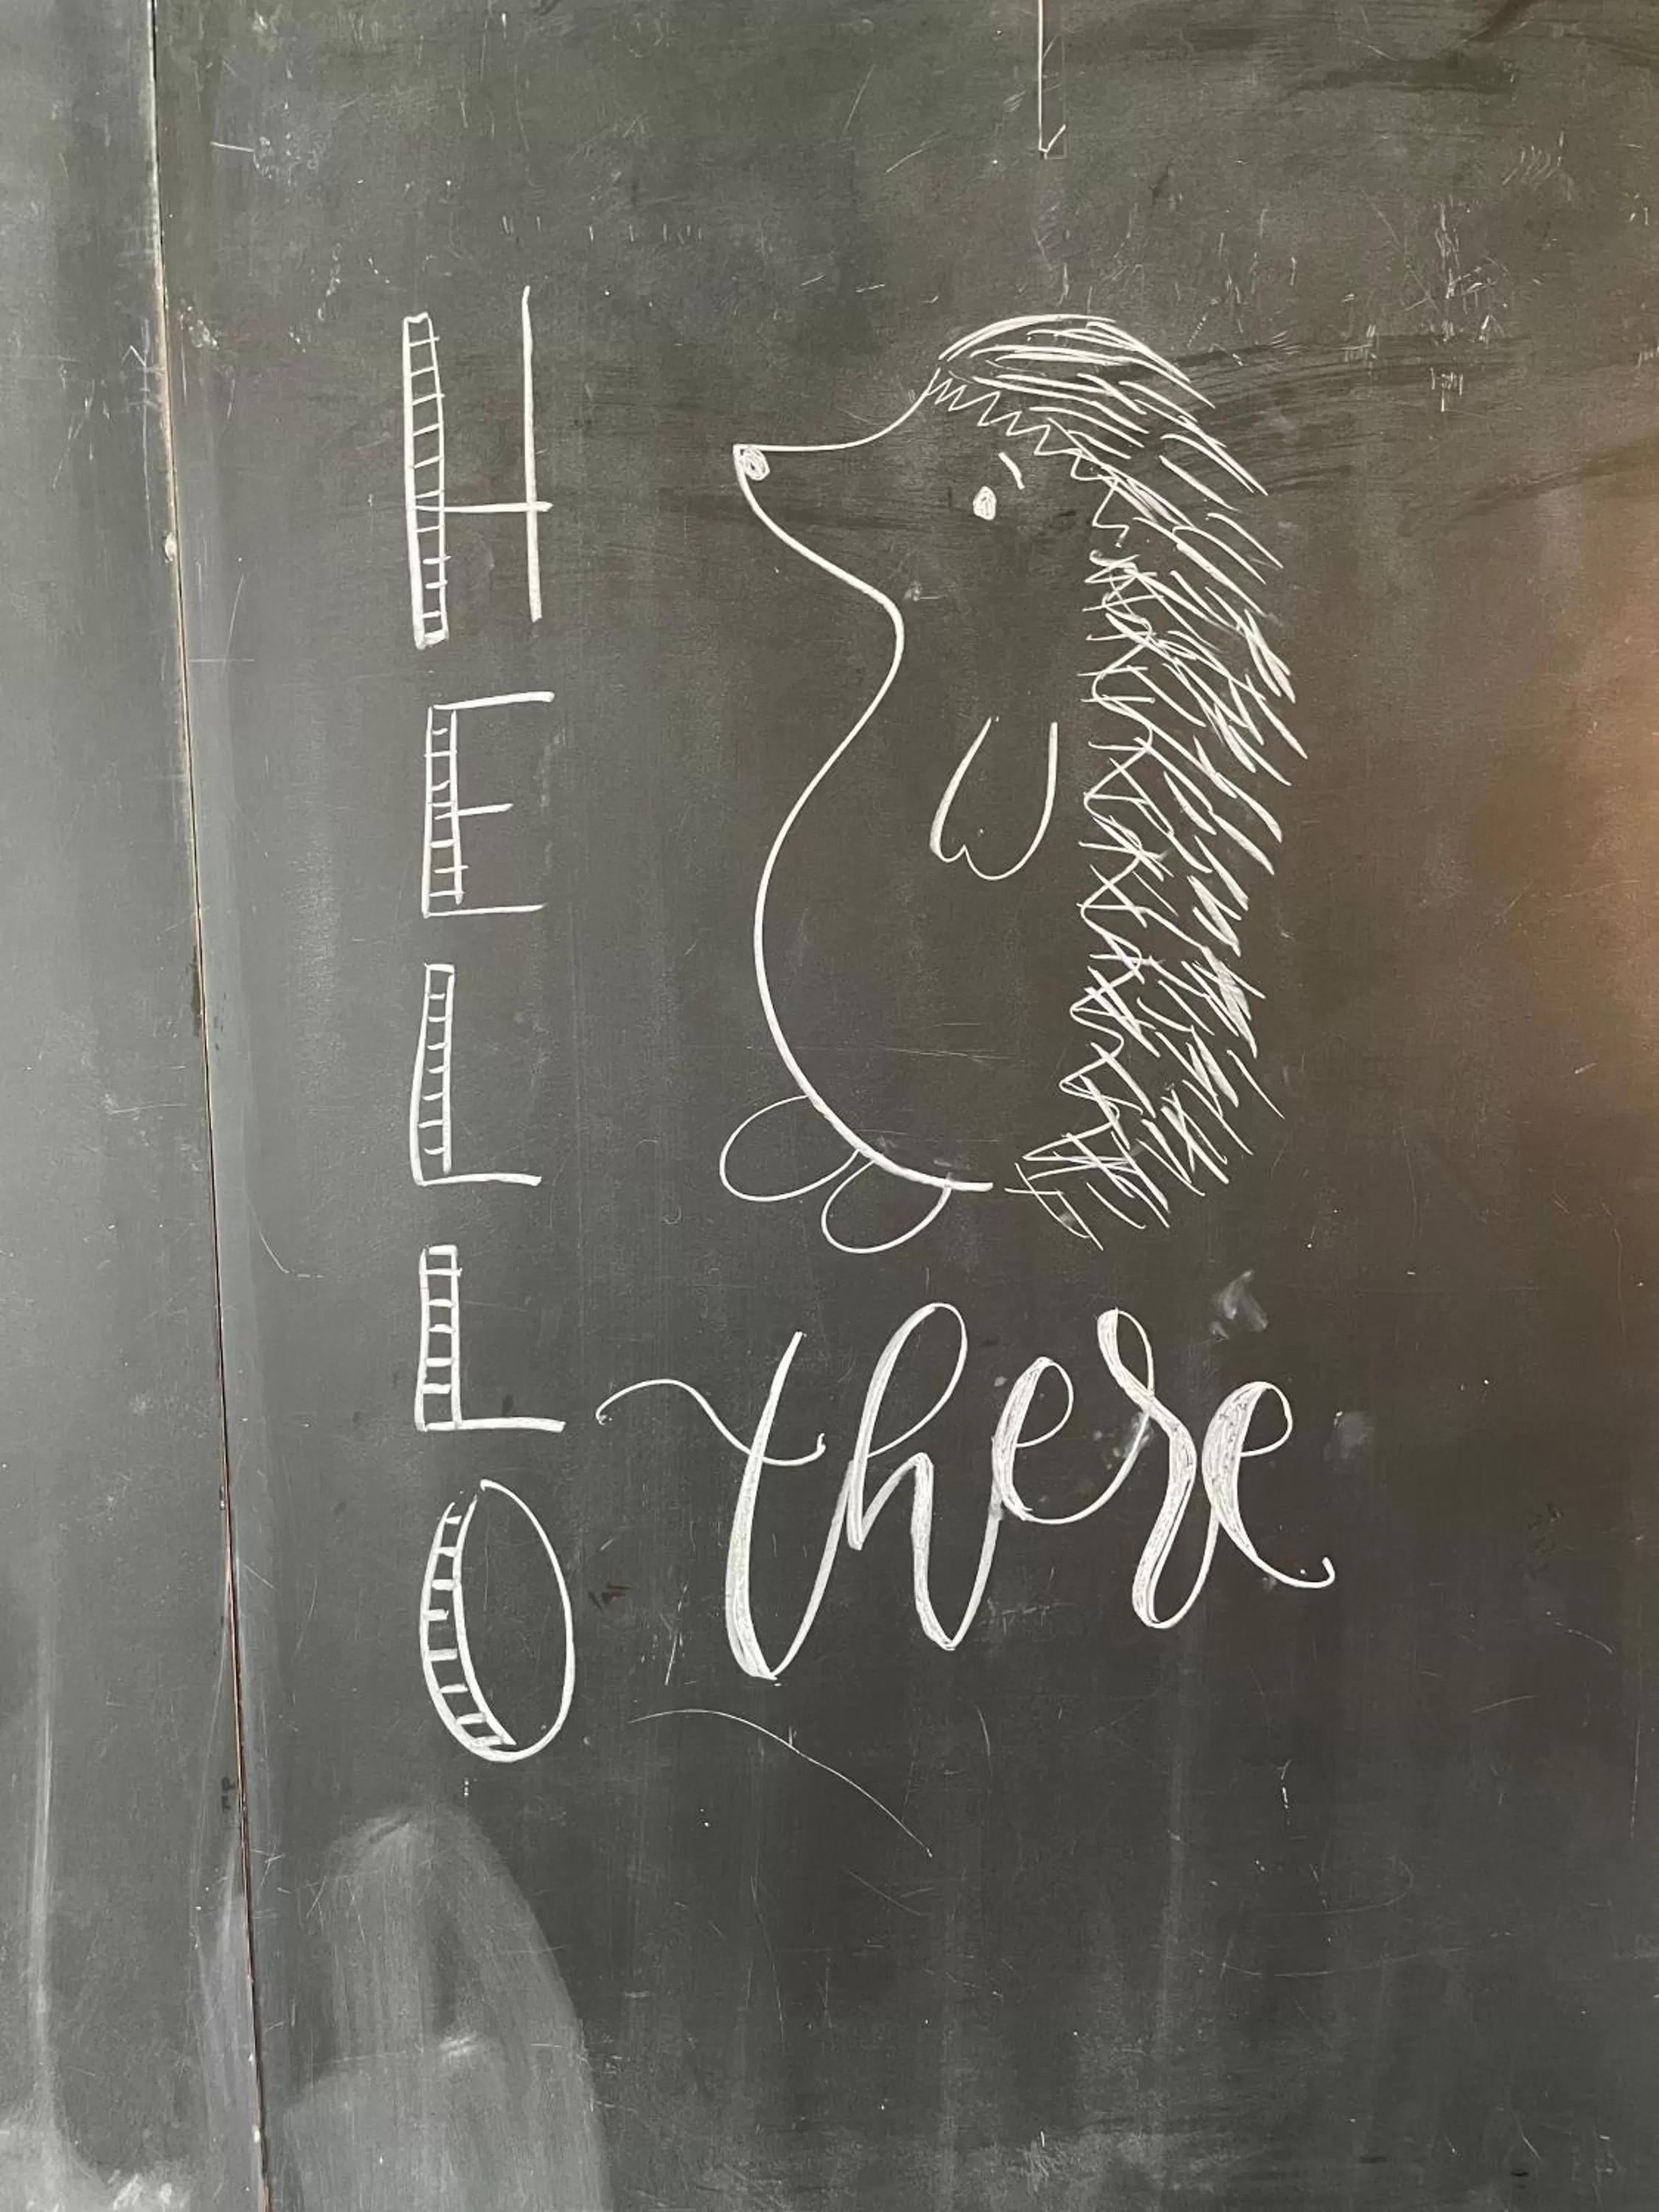 HELLO
there